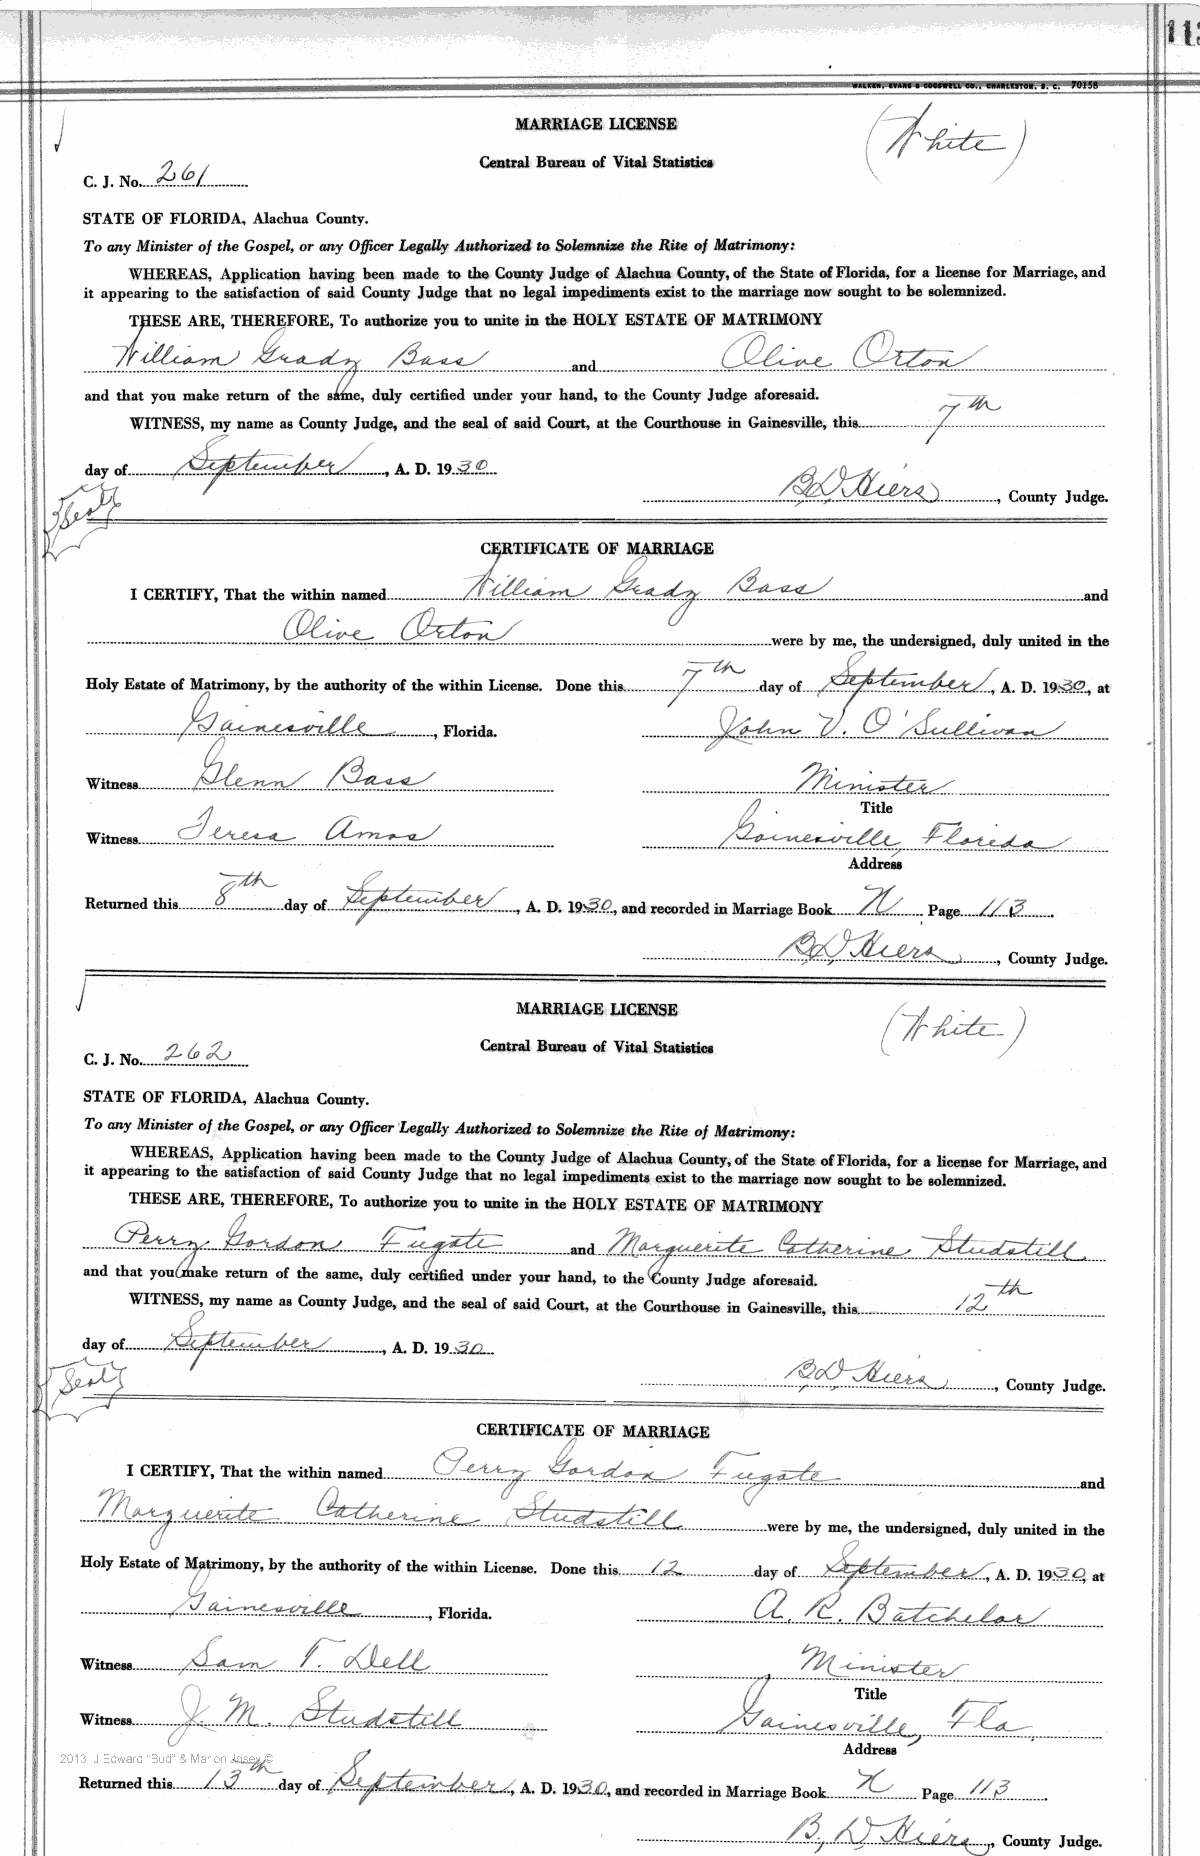 113
WALKER, EVANS & COGSWELL CO., CHARLESTON, S. C. 70158
MARRIAGE LICENSE
(White)
Central Bureau of Vital Statistics
C. J. No. 261
STATE OF FLORIDA, Alachua County.
To any Minister of the Gospel, or any Officer Legally Authorized to Solemnize the Rite of Matrimony:
WHEREAS, Application having been made to the County Judge of Alachua County, of the State of Florida, for a license for Marriage, and
it appearing to the satisfaction of said County Judge that no legal impediments exist to the marriage now sought to be solemnized.
THESE ARE, THEREFORE, To authorize you to unite in the HOLY ESTATE OF MATRIMONY
William Grady Bass and Olive Orton
and that you make return of the same, duly certified under your hand, to the County Judge aforesaid.
WITNESS, my name as County Judge, and the seal of said Court, at the Courthouse in Gainesville, this 7th
day of September, A. D. 1930
B D Hiers, County Judge.
Seal
CERTIFICATE OF MARRIAGE
I CERTIFY, That the within named William Grady Bass and
Olive Orton were by me, the undersigned, duly united in the
Holy Estate of Matrimony, by the authority of the within License. Done this 7th day of September, A. D. 1930, at
Gainesville, Florida. John V. O'Sullivan
Witness Glenn Bass Minister
Title
Witness Teresa Amos Gainesville, Florida
Address
Returned this 8th day of September, A. D. 1930, and recorded in Marriage Book N Page 113.
B D Hiers, County Judge.
MARRIAGE LICENSE
(White)
Central Bureau of Vital Statistics
C. J. No. 262
STATE OF FLORIDA, Alachua County.
To any Minister of the Gospel, or any Officer Legally Authorized to Solemnize the Rite of Matrimony:
WHEREAS, Application having been made to the County Judge of Alachua County, of the State of Florida, for a license for Marriage, and
it appearing to the satisfaction of said County Judge that no legal impediments exist to the marriage now sought to be solemnized.
THESE ARE, THEREFORE, To authorize you to unite in the HOLY ESTATE OF MATRIMONY
Perry Gordon Fugate and Marguerite Catherine Studstill
and that you make return of the same, duly certified under your hand, to the County Judge aforesaid.
WITNESS, my name as County Judge, and the seal of said Court, at the Courthouse in Gainesville, this 12th
day of September, A. D. 1930
B D Hiers, County Judge.
Seal
CERTIFICATE OF MARRIAGE
I CERTIFY, That the within named Perry Gordon Fugate and
Marguerite Catherine Studstill were by me, the undersigned, duly united in the
Holy Estate of Matrimony, by the authority of the within License. Done this 12 day of September, A. D. 1930, at
Gainesville, Florida. A. R. Batchelor
Witness Sam T. Dell Minister
Title
Witness J. M. Studstill Gainesville, Fla
Address
2013 J Edward "Bud" & Marion Josey ©
Returned this 13th day of September, A. D. 1930, and recorded in Marriage Book N Page 113.
B. D. Hiers, County Judge.